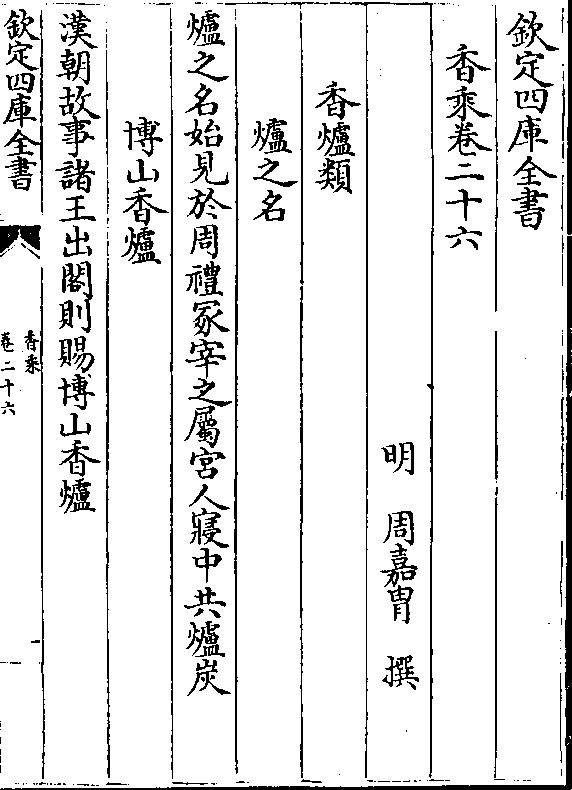 欽定四庫全書
香乘卷二十六
明 周嘉胄 撰
香爐類
爐之名
爐之名始見於周禮冢宰之屬宮人寢中共爐炭
博山香爐
漢朝故事諸王出閣則賜博山香爐
欽定四庫全書
香乘
卷二十六